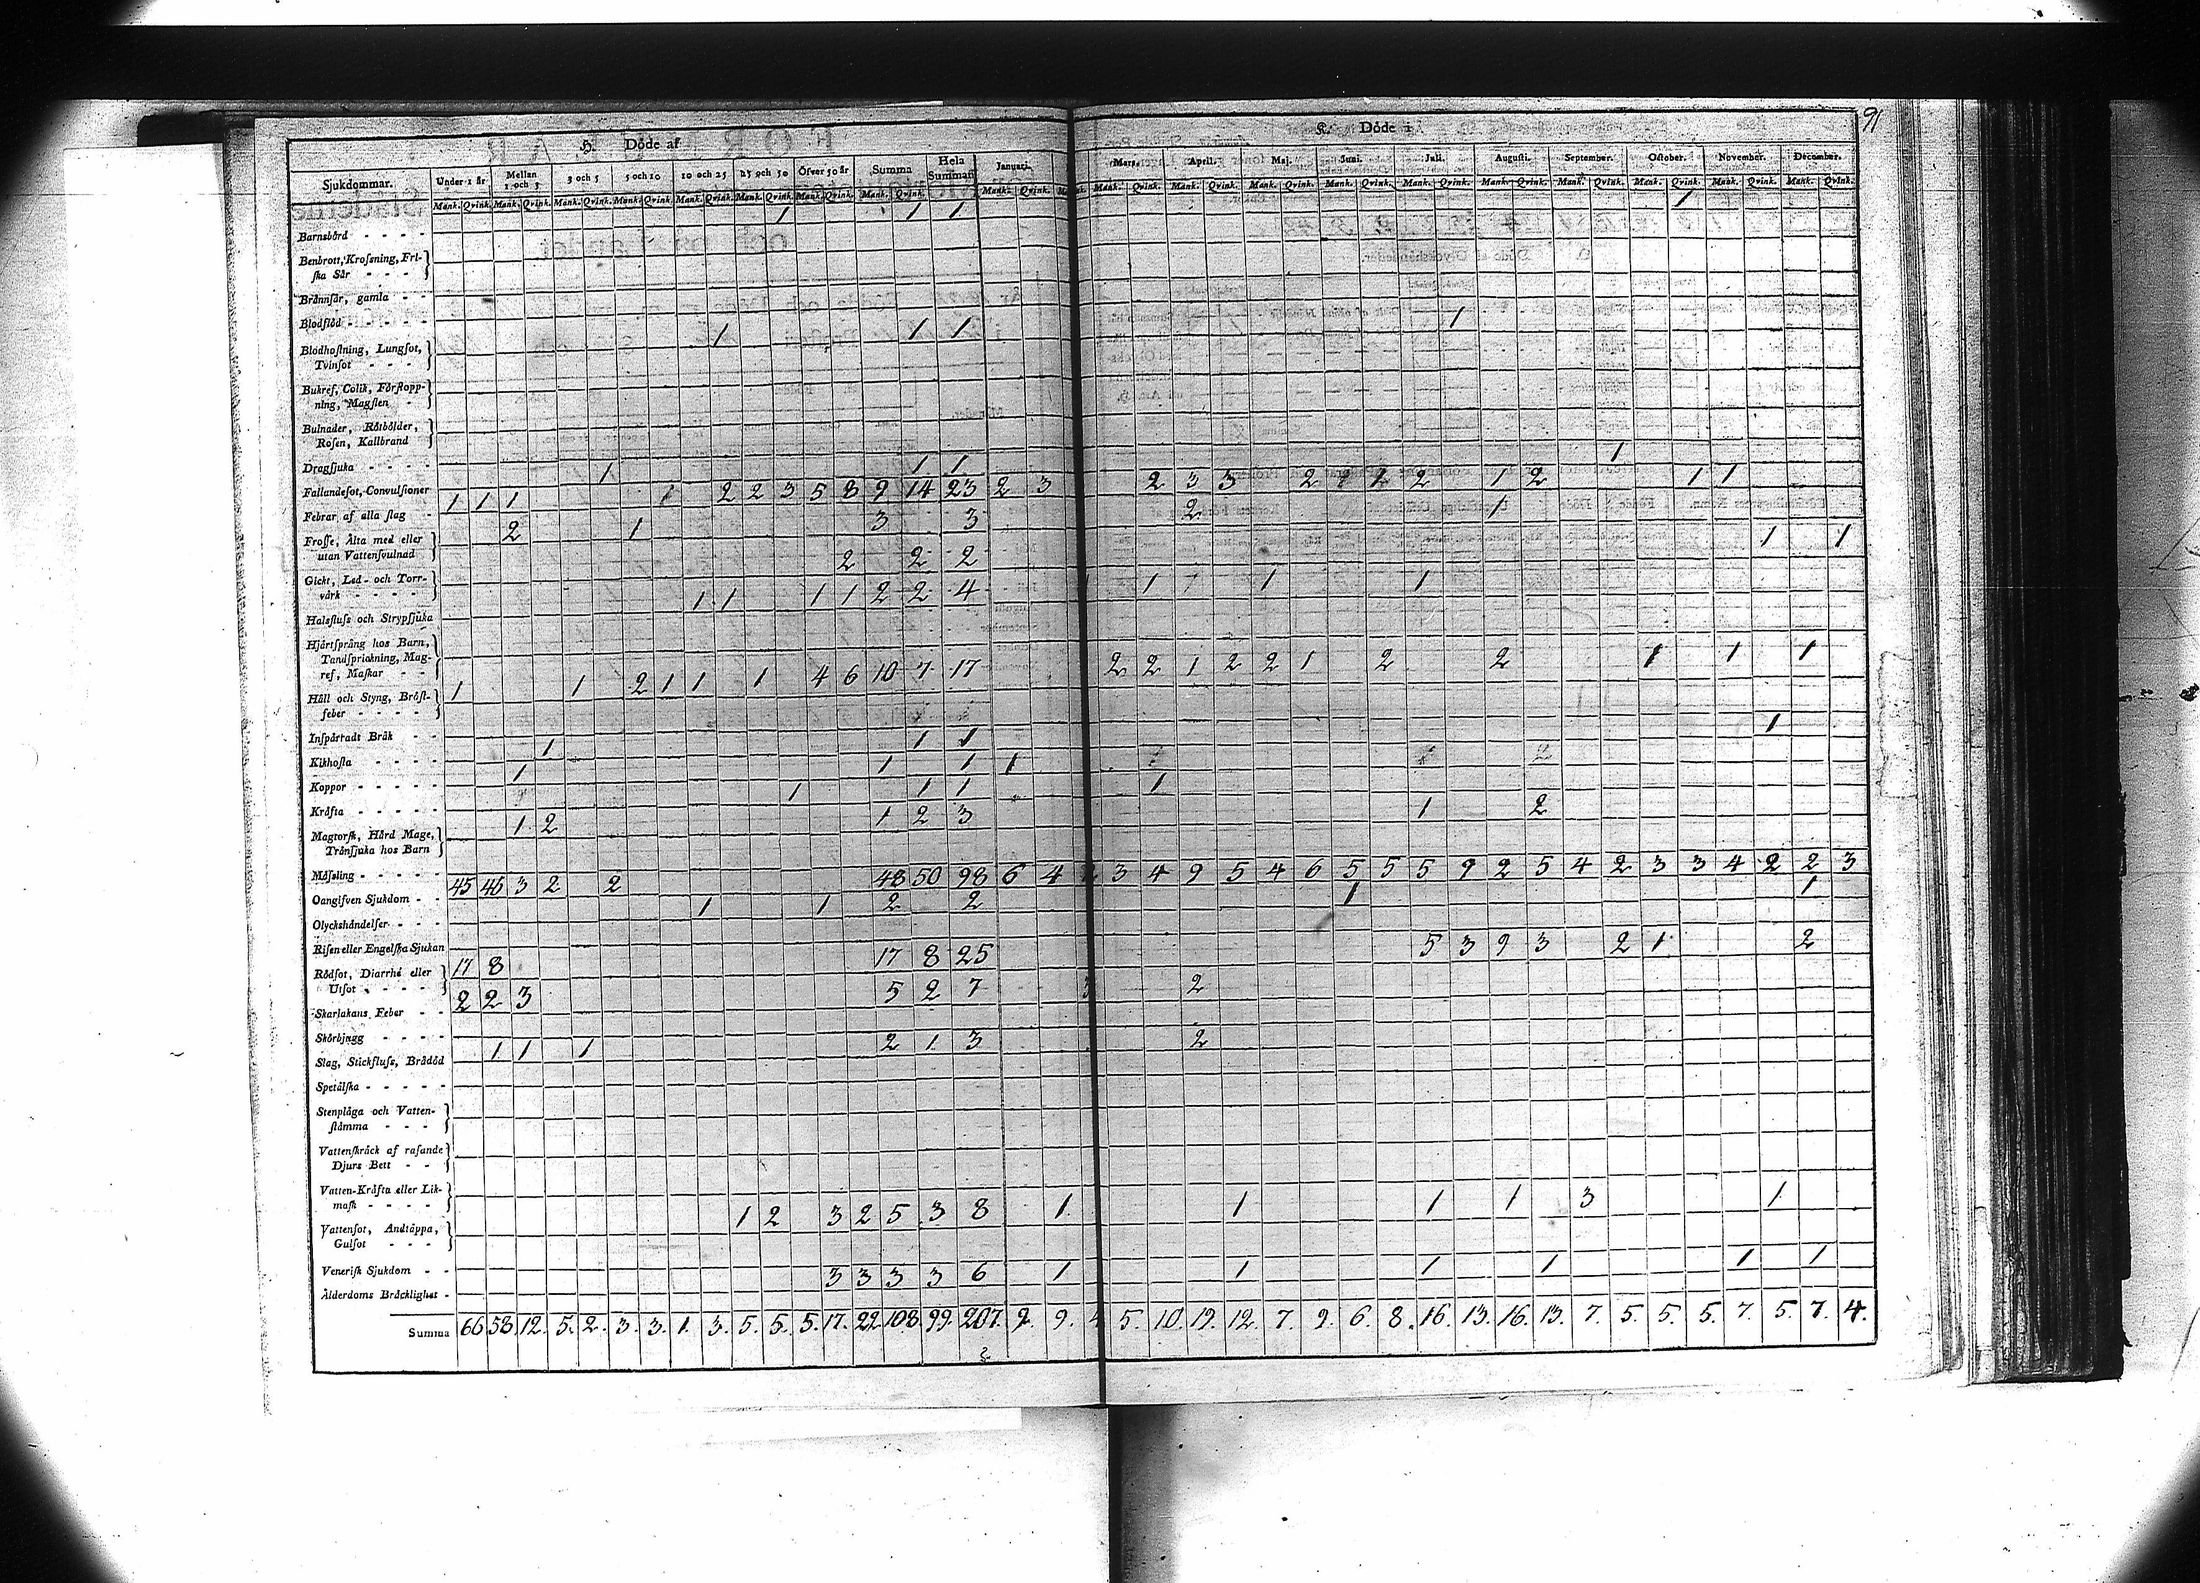 91
H. Döde af
K. Döde i
Sjukdommar. Under 1 år Mellan 1 och 3 3 och 5 5 och 10 10 och 25 25 och 50 Öfver 50 år Summa Hela Summan Januari. Mars. April. Maj. Juni. Juli. Augusti. September. October. November. December.
Mank. Qvink. Mank. Qvink. Mank. Qvink. Mank. Qvink. Mank. Qvink. Mank. Qvink. Mank. Qvink. Mank. Qvink. Mank. Qvink. Mank. Qvink. Mank. Qvink. Mank. Qvink. Mank. Qvink. Mank. Qvink. Mank. Qvink. Mank. Qvink. Mank. Qvink. Mank. Qvink. Mank. Qvink.
Barnsbörd - - - - 1 1 1 1
Benbrott, Krossning, Fri-
ska Sår - - -
Brännsår, gamla - -
Blodflöd - - - - -
Blodhostning, Lungsot, 1 1 1 1
Tvinsot - - -
Bukref, Colik, Förstopp-
ning, Magsten -
Bulnader, Rötbölder,
Rosen, Kallbrand
Dragsjuka - - - -
Fallandesot, Convulsioner 1 1 1 1
Febrar af alla slag - 1 1 1 1 2 2 3 5 8 9 14 23 2 3 2 3 3 2 1 2 1 2 1 1
Frosse, Älta med eller 2 1 3 3 2 1
utan Vattensvulnad
Gickt, Led- och Torr- 2 2 2 1 1
värk - - - -
Halsfluss och Strypsjuka 1 1 1 1 2 2 4 1 1 1
Hjärtsprång hos Barn,
Tandsprickning, Mag-
ref, Maskar - -
Håll och Styng, Bröst- 1 1 2 1 1 1 4 6 10 7 17 2 2 1 2 2 1 2 2 1 1 1
feber - - - -
Insparradt Bråk - -
Kikhosta - - - - 1 1 1 1
Koppor - - - - - 1 1 1 1
Kräfta - - - - - 1 1 1 1
Magtorsk, Hård Mage, 1 2 1 2 3 1 2
Tränsjuka hos Barn
Mässling - - - - -
Oangifven Sjukdom - - 45 45 3 2 2 48 50 98 6 4 3 4 9 5 4 6 5 5 5 9 2 5 4 2 3 3 4 2 2 3
Olyckshändelser - - - 1 1 2 2 1 1
Risen eller Engelska Sjukan
Rödsot, Diarrhé eller 17 8 17 8 25 5 3 9 3 2 1 2
Utsot - - - -
Skarlakans Feber - - 2 2 3 5 2 7 2
Skörbjugg - - - -
Slag, Stickfluss, Brådöd 1 1 1 2 1 3 2
Spetälska - - - - -
Stenplåga och Vatten-
stämma - - -
Vattenskräck af rasande
Djurs Bett - -
Vatten-Kräfta eller Lik-
mask - - - -
Vattensot, Andtäppa, 1 2 3 2 5 3 8 1 1 1 1 3 1
Gulsot - - -
Venerisk Sjukdom - -
Ålderdoms Bräcklighet - 3 3 3 3 6 1 1 1 1 1 1
Summa 66 58. 12. 5. 2. 3. 3. 1. 3. 5. 5. 5. 17. 22. 108. 99. 207. 9. 9. 4 5. 10. 19. 12. 7. 9. 6. 8. 16. 13. 16. 13. 7. 5. 5. 5. 7. 5. 7. 4.